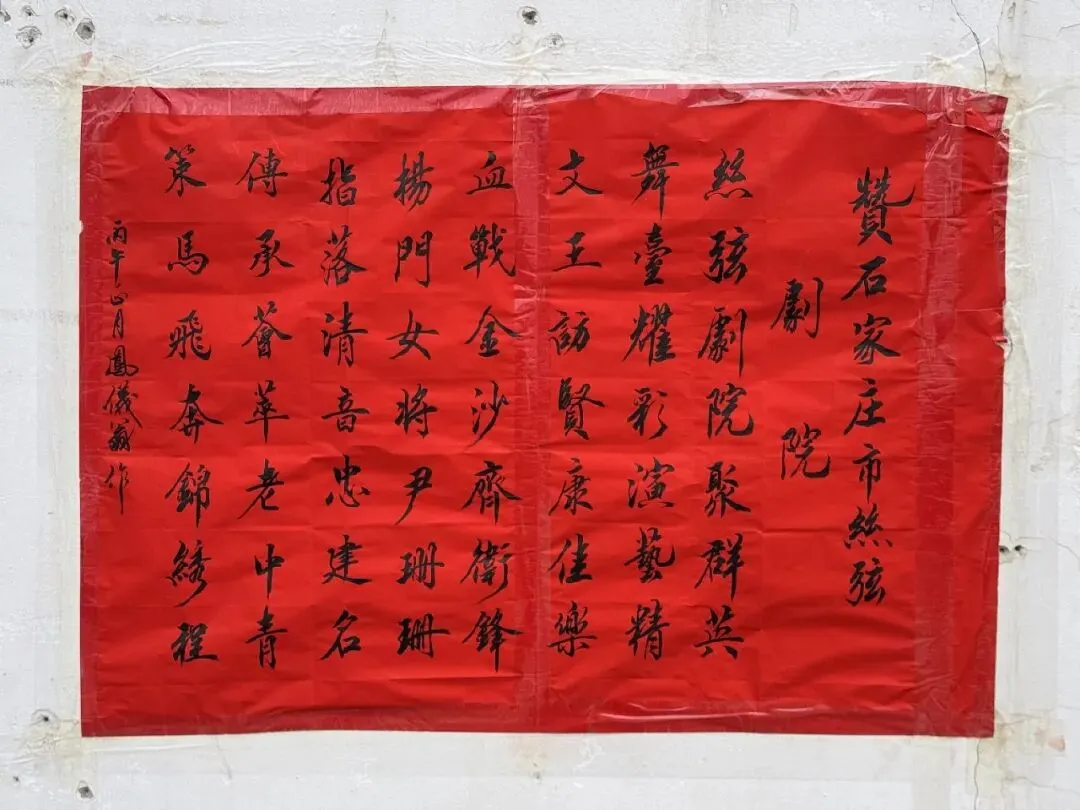 贊石家庄市絲弦
劇院
絲弦劇院聚群英
舞臺耀彩演藝精
文王訪賢康佳樂
血戰金沙齊衝鋒
楊門女將尹珊珊
指落清音忠建名
傳承薈萃老中青
策馬飛奔錦綉程
丙午四月鳳儀翁作